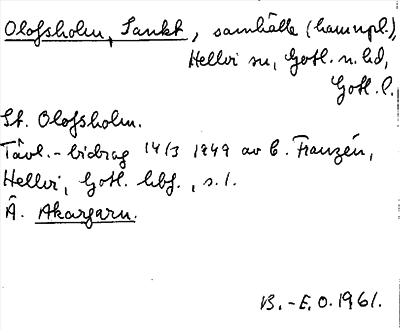 Olofsholm, Sankt, samhälle (hamnpl.),
Hellvi sn, Gotl. n. hd,
Gotl. l.
St. Olofsholm.
Tävl.-bidrag 14/3 1949 av C. Franzén,
Hellvi, Gotl. hbf., s. 1.
Ä. Akargarn.
B.-E.O. 1961.